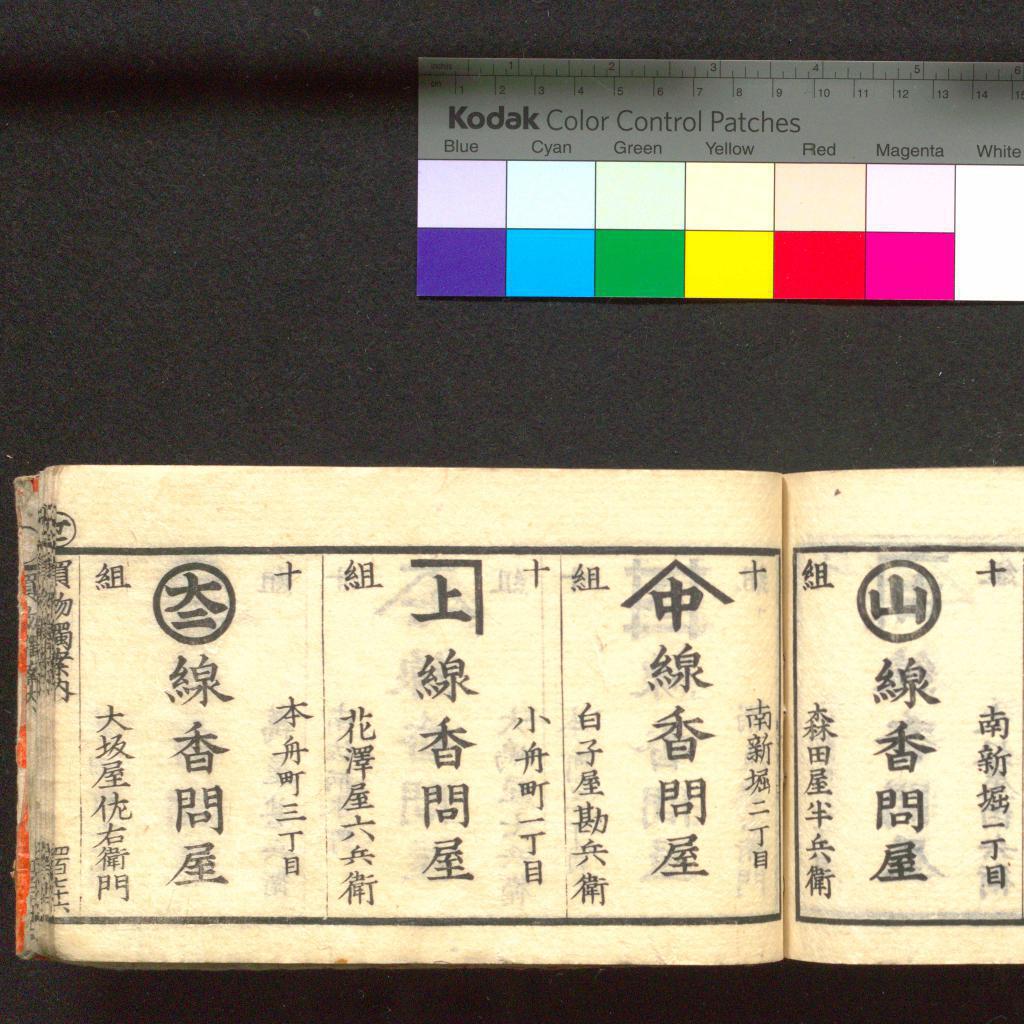 inches 1 2 3 4 5 6
cm 1 2 3 4 5 6 7 8 9 10 11 12 13 14 15
Kodak Color Control Patches
Blue Cyan Green Yellow Red Magenta White
十組
南新堀一丁目
山
線香問屋
森田屋半兵衛
十組
南新堀二丁目
中
線香問屋
白子屋勘兵衛
十組
小舟町一丁目
上
線香問屋
花澤屋六兵衛
十組
本舟町三丁目
大二
線香問屋
大坂屋佐右衛門
買物獨案内
四百七十六